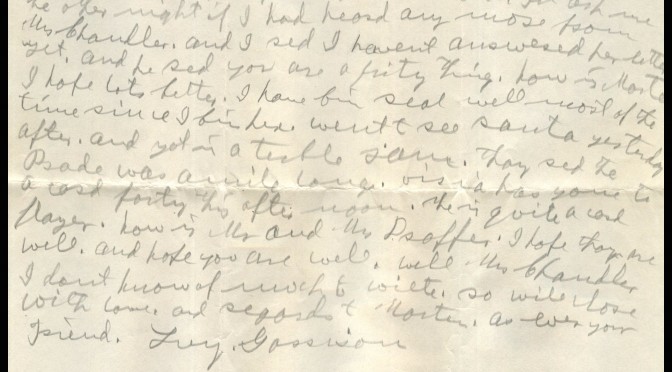 the other night if I had heard any more from
Ms Chandler. and I sed I havent answered her letter
yet. and he sed you are a prity thing. how is Morten
I hope lots better. I have bin real well most of the
time since I bin her. wentt see santa yesterday
after. and got in a terble jam. thay sed the
Prade was a mile long. has gone to
a card party this after noon. She is quite a card
Player. how is Mr and Ms I hope thay are
well. and hope you are well. well Ms Chandler
I dont know of much to wiete. so will close
with love. and regards t Morten. as ever your
Friend.